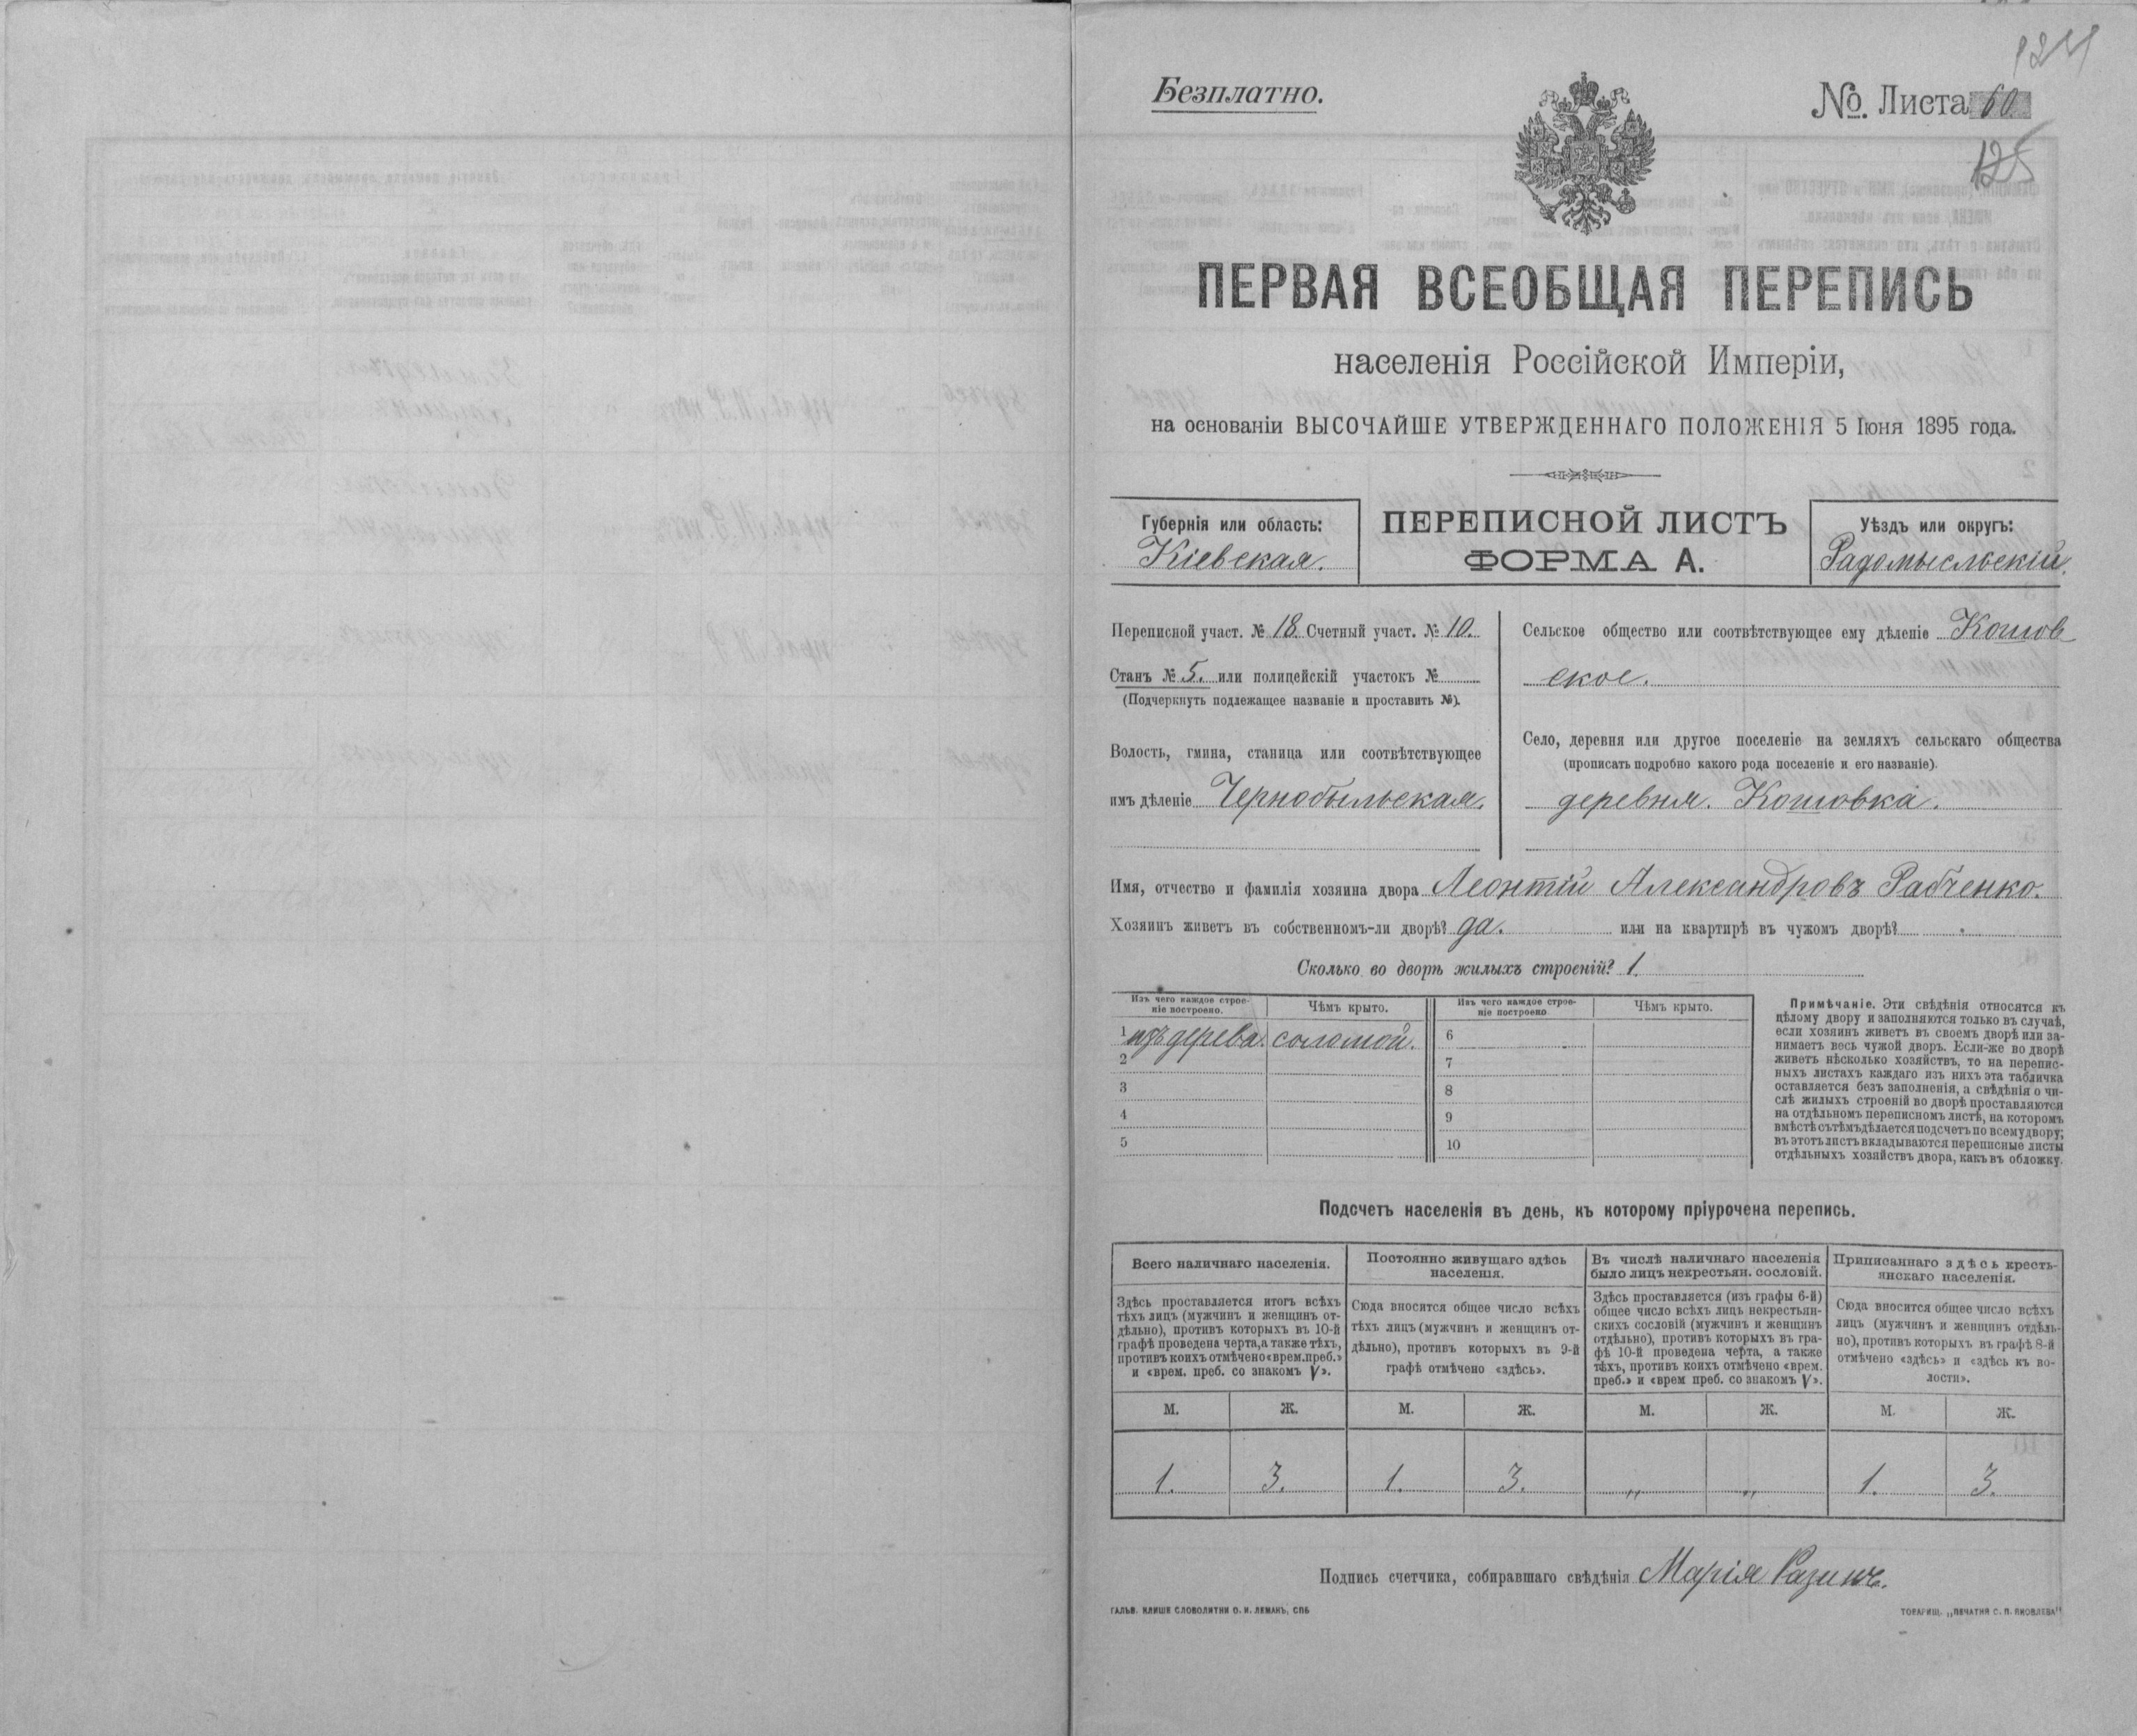 Безплатно.
№. Листа 60.
125
ПЕРВАЯ ВСЕОБЩАЯ ПЕРЕПИСЬ
населенія Россійской Имперіи,
на основаніи ВЫСОЧАЙШЕ УТВЕРЖДЕННАГО ПОЛОЖЕНІЯ 5 Іюня 1895 года.
Губернія или область:
Кіевская.
ПЕРЕПИСНОЙ ЛИСТЪ
ФОРМА А.
Уѣздъ или округъ:
Радомысльскій.
Переписной участ. № 18. Счетный участ. № 10.
Станъ № 5. или полицейскій участокъ №
(Подчеркнуть подлежащее названіе и проставить №).
Волость, гмина, станица или соотвѣтствующее
имъ дѣленіе Чернобыльская.
Сельское общество или соотвѣтствующее ему дѣленіе Кошов
ское.
Село, деревня или другое поселеніе на земляхъ сельскаго общества
(прописать подробно какого рода поселеніе и его названіе).
деревня. Кошовка.
Имя, отчество и фамилія хозяина двора Леонтій Александровъ Рабченко.
Хозяинъ живетъ въ собственномъ-ли дворѣ? да. или на квартирѣ въ чужомъ дворѣ?
Сколько во дворѣ жилыхъ строеній? 1.
Изъ чего каждое строе-
ніе построено.
Чѣмъ крыто.
Изъ чего каждое строе-
ніе построено
Чѣмъ крыто.
1 изъ дерева. соломой.
2
3
4
5
6
7
8
9
10
Примѣчаніе. Эти свѣдѣнія относятся къ
цѣлому двору и заполняются только въ случаѣ,
если хозяинъ живетъ въ своемъ дворѣ или за-
нимаетъ весь чужой дворъ. Если-же во дворѣ
живетъ нѣсколько хозяйствъ, то на перепис-
ныхъ листахъ каждаго изъ нихъ эта табличка
оставляется безъ заполненія, а свѣдѣнія о чи-
слѣ жилыхъ строеній во дворѣ проставляются
на отдѣльномъ переписномъ листѣ, на которомъ
вмѣстѣ съ тѣмъ дѣлается подсчетъ по всему двору;
въ этотъ листъ вкладываются переписные листы
отдѣльныхъ хозяйствъ двора, какъ въ обложку.
Подсчетъ населенія въ день, къ которому пріурочена перепись.
Всего наличнаго населенія.
Здѣсь проставляется итогъ всѣхъ
тѣхъ лицъ (мужчинъ и женщинъ от-
дѣльно), противъ которыхъ въ 10-й
графѣ проведена черта, а также тѣхъ,
противъ коихъ отмѣчено «врем. преб.»
и «врем. преб. со знакомъ V».
Постоянно живущаго здѣсь
населенія.
Сюда вносится общее число всѣхъ
тѣхъ лицъ (мужчинъ и женщинъ от-
дѣльно), противъ которыхъ въ 9-й
графѣ отмѣчено «здѣсь».
Въ числѣ наличнаго населенія
было лицъ некрестьян. сословій.
Здѣсь проставляется (изъ графы 6-й)
общее число всѣхъ лицъ некрестьян-
скихъ сословій (мужчинъ и женщинъ
отдѣльно), противъ которыхъ въ гра-
фѣ 10-й проведена черта, а также
тѣхъ, противъ коихъ отмѣчено «врем.
преб.» и «врем преб. со знакомъ V».
Приписаннаго здѣсь кресть-
янскаго населенія.
Сюда вносится общее число всѣхъ
лицъ (мужчинъ и женщинъ отдѣль-
но), противъ которыхъ въ графѣ 8-й
отмѣчено «здѣсь» и «здѣсь къ во-
лости».
М. Ж. М. Ж. М. Ж. М. Ж.
1. 3. 1. 3. „ „ 1. 3.
Подпись счетчика, собиравшаго свѣдѣнія Марія
ГАЛЬВ. КЛИШЕ СЛОВОЛИТНИ О. И. ЛЕМАНЪ, СПБ
ТОВАРИЩ. „ПЕЧАТНЯ С. П. ЯКОВЛЕВА"